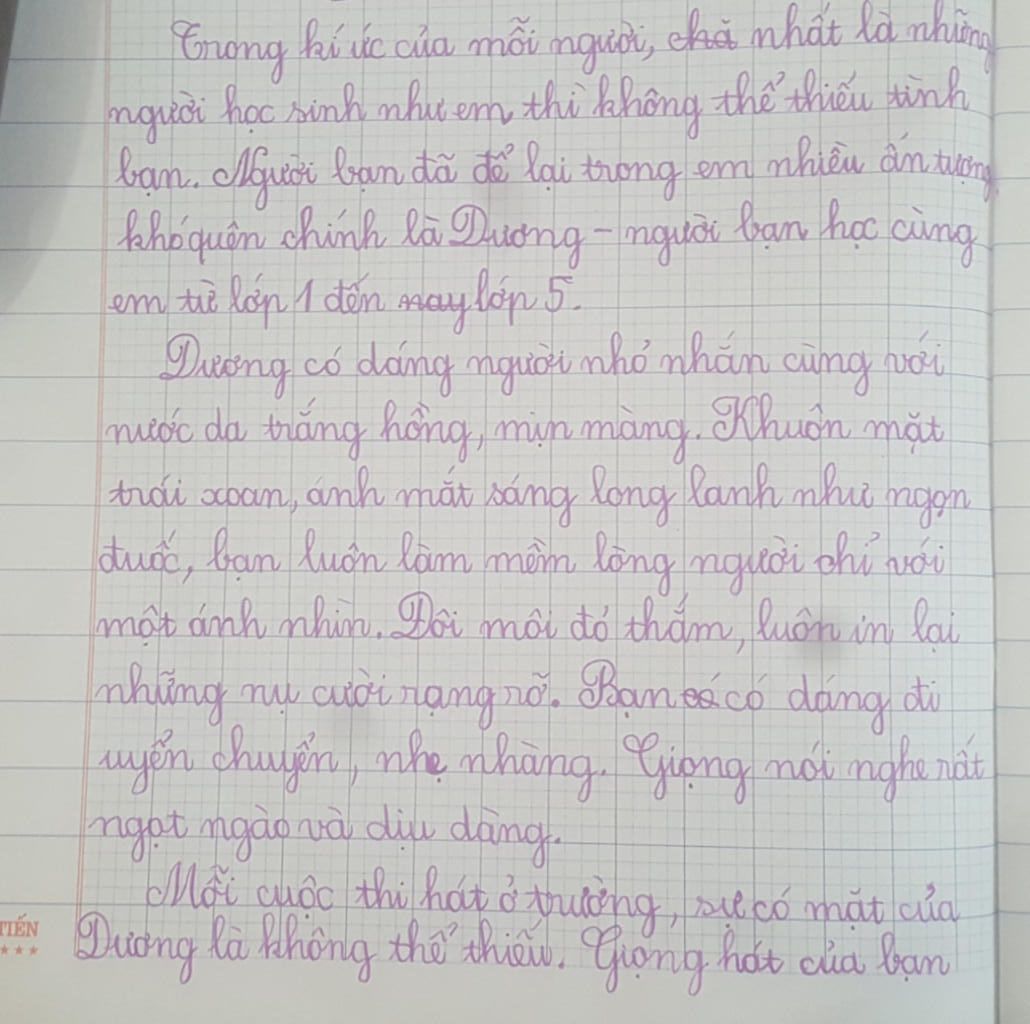 Trong kí ức của mỗi người, chả nhất là những
người học sinh như em thì không thể thiếu tình
bạn. Người bạn đã để lại trong em nhiều ấn tượng
khó quên chính là Dương - người bạn học cùng
em từ lớp 1 đến nay lớp 5.
Dương có dáng người nhỏ nhắn cùng với
nước da trắng hồng, mịn màng. Khuôn mặt
trái xoan, ánh mắt sáng long lanh như ngọn
đuốc, bạn luôn làm mềm lòng người chỉ với
một ánh nhìn. Đôi môi đỏ thắm, luôn in lại
những nụ cười rạng rỡ. Bạn có có dáng đi
uyển chuyển, nhẹ nhàng. Giọng nói nghe rất
ngọt ngào và dịu dàng.
Mỗi cuộc thi hát ở trường, sự có mặt của
TIẾN
Dương là không thể thiếu. Giọng hát của bạn